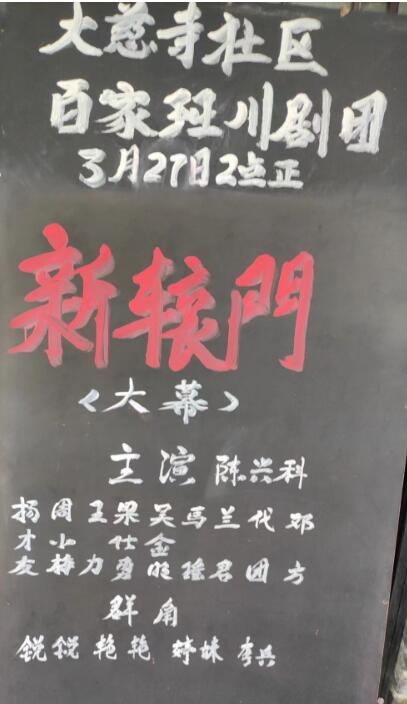 大慈寺社区
百家班川剧团
3月27日2点正
新辕門
<大幕>
主演 陈兴科
杨 周 王 梁 吴 馬 兰 代 邓
才 小 仕 金
友 力 勇 旺 瑶 君 团 方
群角
锐锐 艳艳 婷妹 李兵